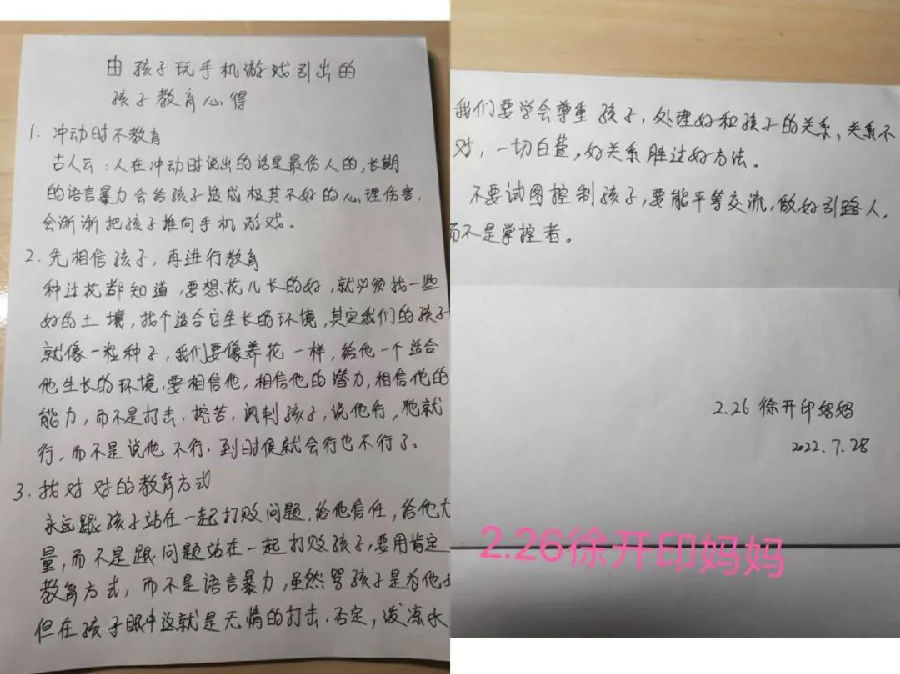 由孩子玩手机游戏引出的
孩子教育心得
1. 冲动时不教育
古人云:人在冲动时说出的话是最伤人的,长期
的语言暴力会给孩子造成极其不好的心理伤害,
会渐渐把孩子推向手机游戏。
2. 先相信孩子,再进行教育
种过花都知道,要想花儿长的好,就必须找一些
好的土壤,找个适合它生长的环境,其实我们的孩子
就像一粒种子,我们要像养花一样,给他一个适合
他生长的环境,要相信他,相信他的潜力,相信他的
能力,而不是打击,挖苦,讽刺孩子,说他行,他就
行,而不是说他不行,到时候就会行也不行了。
3. 找对对的教育方式
永远跟孩子站在一起打败问题,给他信任,给他力
量,而不是跟问题站在一起打败孩子,要用肯定
教育方式,而不是语言暴力,虽然骂孩子是为他好
但在孩子眼中这就是无情的打击,否定,泼凉水
我们要学会尊重孩子,处理好和孩子的关系,关系不
对,一切白费,好关系胜过好方法。
不要试图控制孩子,要能平等交流,做好引路人,
而不是掌控者。
2.26 徐开印妈妈
2022.7.28
2.26徐开印妈妈